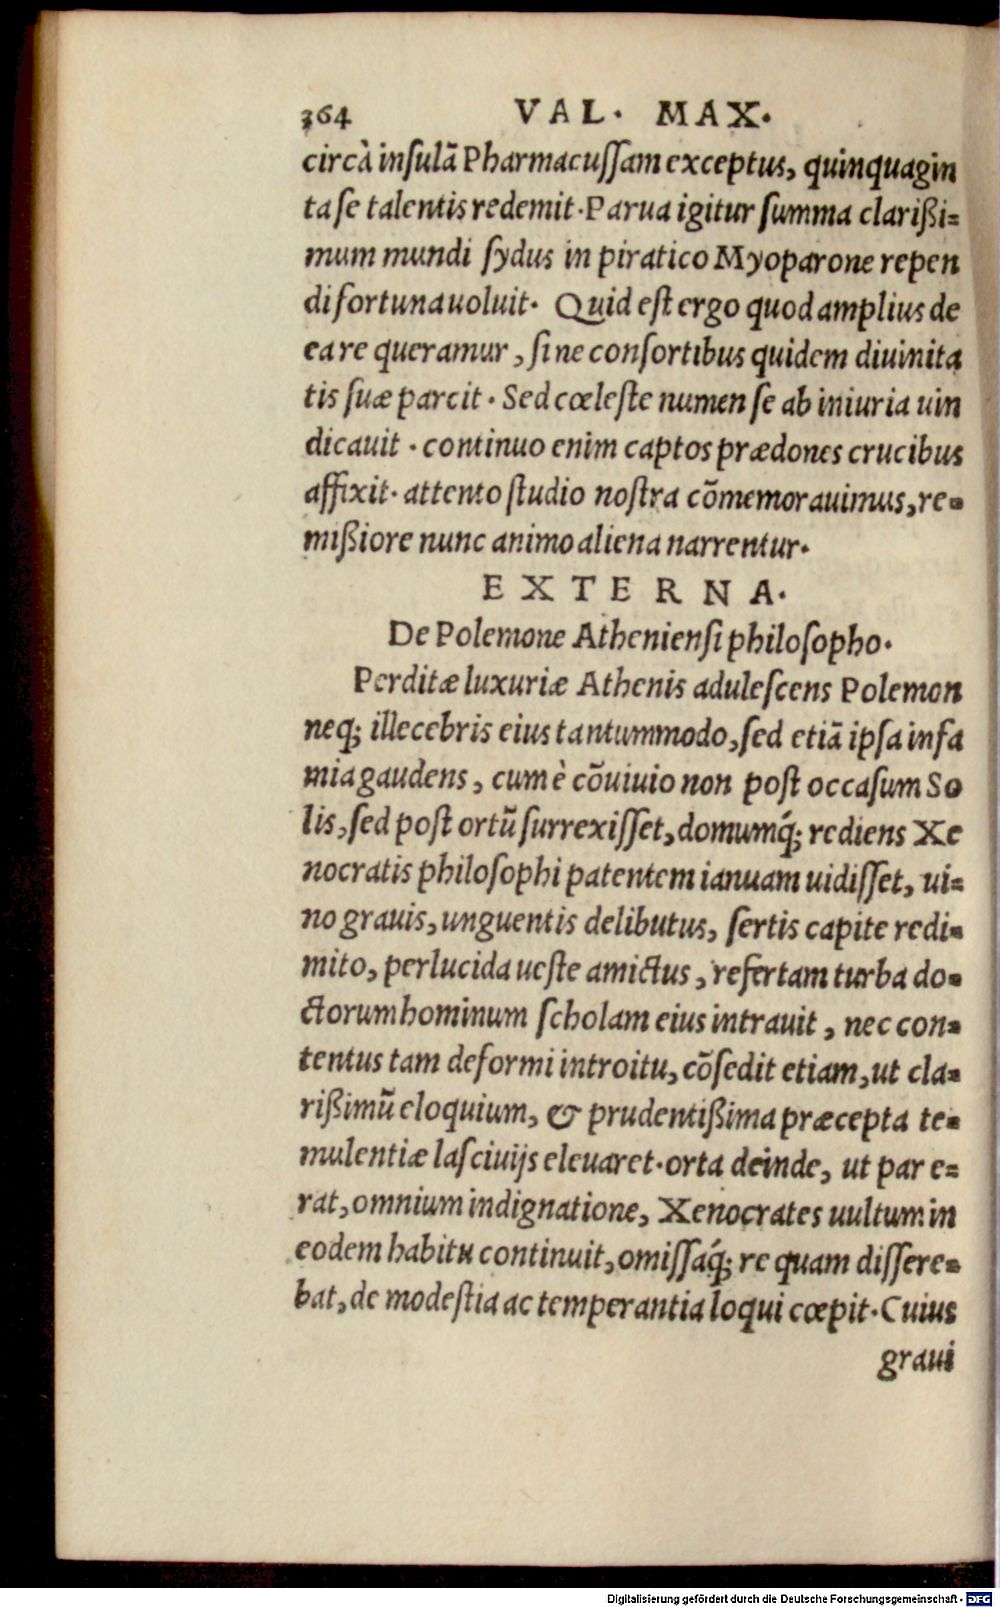 364 VAL. MAX.
circà insulā Pharmacussam exceptus, quinquagin
ta se talentis redemit. Parua igitur summa clarißi-
mum mundi sydus in piratico Myoparone repen
di fortuna uoluit. Quid est ergo quod amplius de
ea re queramur, si ne consortibus quidem diuinita
tis suæ parcit. Sed cœleste numen se ab iniuria uin
dicauit. continuo enim captos prædones crucibus
affixit. attento studio nostra cōmemorauimus, re-
mißiore nunc animo aliena narrentur.
EXTERNA.
De Polemone Atheniensi philosopho.
Perditæ luxuriæ Athenis adulescens Polemon
neq; illecebris eius tantummodo, sed etiā ipsa infa
mia gaudens, cum è cōuiuio non post occasum So
lis, sed post ortū surrexisset, domumq́; rediens Xe
nocratis philosophi patentem ianuam uidisset, ui-
no grauis, unguentis delibutus, sertis capite redi-
mito, perlucida ueste amictus, refertam turba do-
ctorum hominum scholam eius intrauit, nec con-
tentus tam deformi introitu, cōsedit etiam, ut cla-
rißimū eloquium, & prudentißima præcepta te-
mulentiæ lasciuijs eleuaret. orta deinde, ut par e-
rat, omnium indignatione, Xenocrates uultum in
eodem habitu continuit, omissaq́; re quam dissere-
bat, de modestia ac temperantia loqui cœpit. Cuius
graui
Digitalisierung gefördert durch die Deutsche Forschungsgemeinschaft - DFG